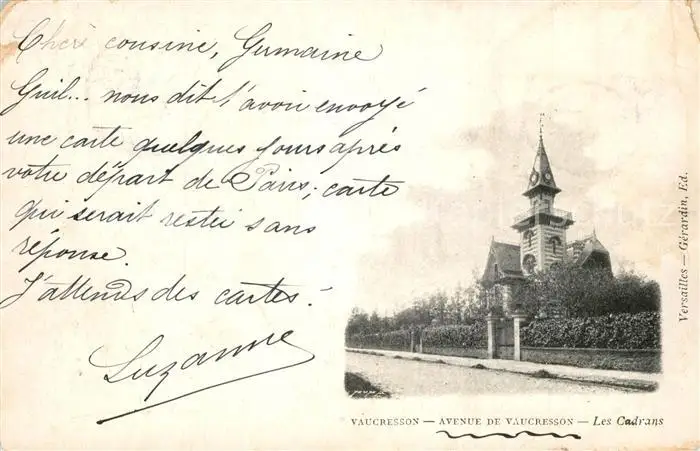 Chère cousine, Germaine
Guil... nous dit t'avoir envoyé
une carte quelques jours après
votre départ de Paris; carte
qui serait restée sans
réponse.
J'attends des cartes.
Suzanne
Versailles — Gérardin, Ed.
VAUCRESSON — AVENUE DE VAUCRESSON — Les Cadrans